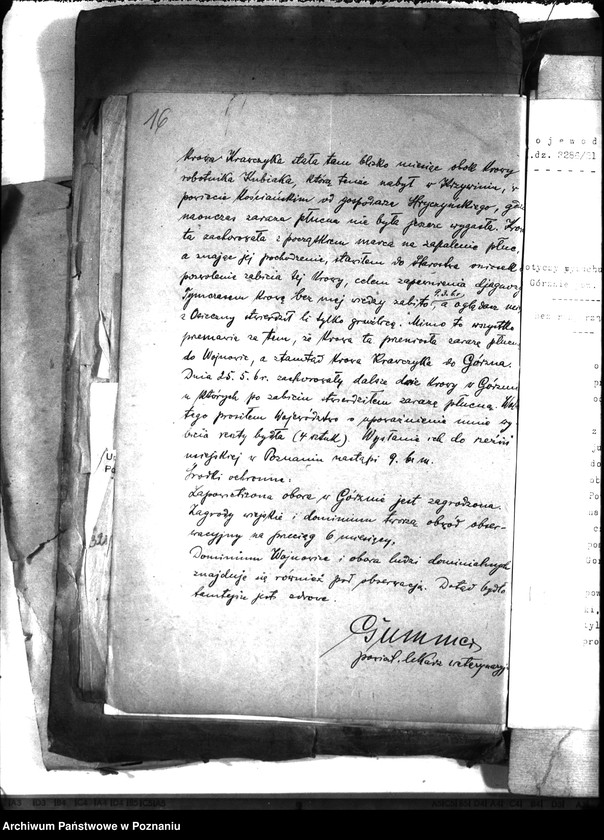 16
Krowa Krawczyka stała tam blisko miesiąc obok krowy
robotnika Kubiaka, którą tenże nabył w Krzywiniu, w
powiecie Kościańskim od gospodarza Stryczyńskiego, gdzie
naonczas zaraza płucna nie była jeszcze wygasła. Krowa
ta zachorowała z początkiem marca na zapalenie płuc,
a znając jej pochodzenie, stawiłem do Starostwa wniosek o
pozwolenie zabicia tej krowy, celem zapewnienia djagnozy
Tymczasem krowę bez mej wiedzy zabito, a oglądacz
z Osieczny stwierdził li tylko gruźlicę. Mimo to wszystko
przemawia za tem, że krowa ta przeniosła zarazę płucną
do Wojnowic, a stamtąd krowa Krawczyka do Górzna.
Dnia 25.5. br. zachorowały dalsze dwie krowy w Górznie
u których po zabiciu stwierdziłem zarazę płucną.
tego prosiłem Województwo o upoważnienie mnie
bicia reszty bydła (4 sztuk). Wysłanie ich do rzeźni
miejskiej w Poznaniu nastąpi 9. b. m.
Środki ochronne:
Zapowietrzona obora w Górznie jest zagrodzona.
Zagrody wiejskie i dominium tworzą obwód obser-
wacyjny na przeciąg 6 miesięcy.
Dominium Wojnowice i obora ludzi dominialnych
znajduje się również pod obserwacją. Dotąd bydło
tamtejsze jest zdrowe.
Gummer
powiat. lekarz weterynaryj
o j e w o d
.dz. 3286/31
Archiwum Państwowe w Poznaniu